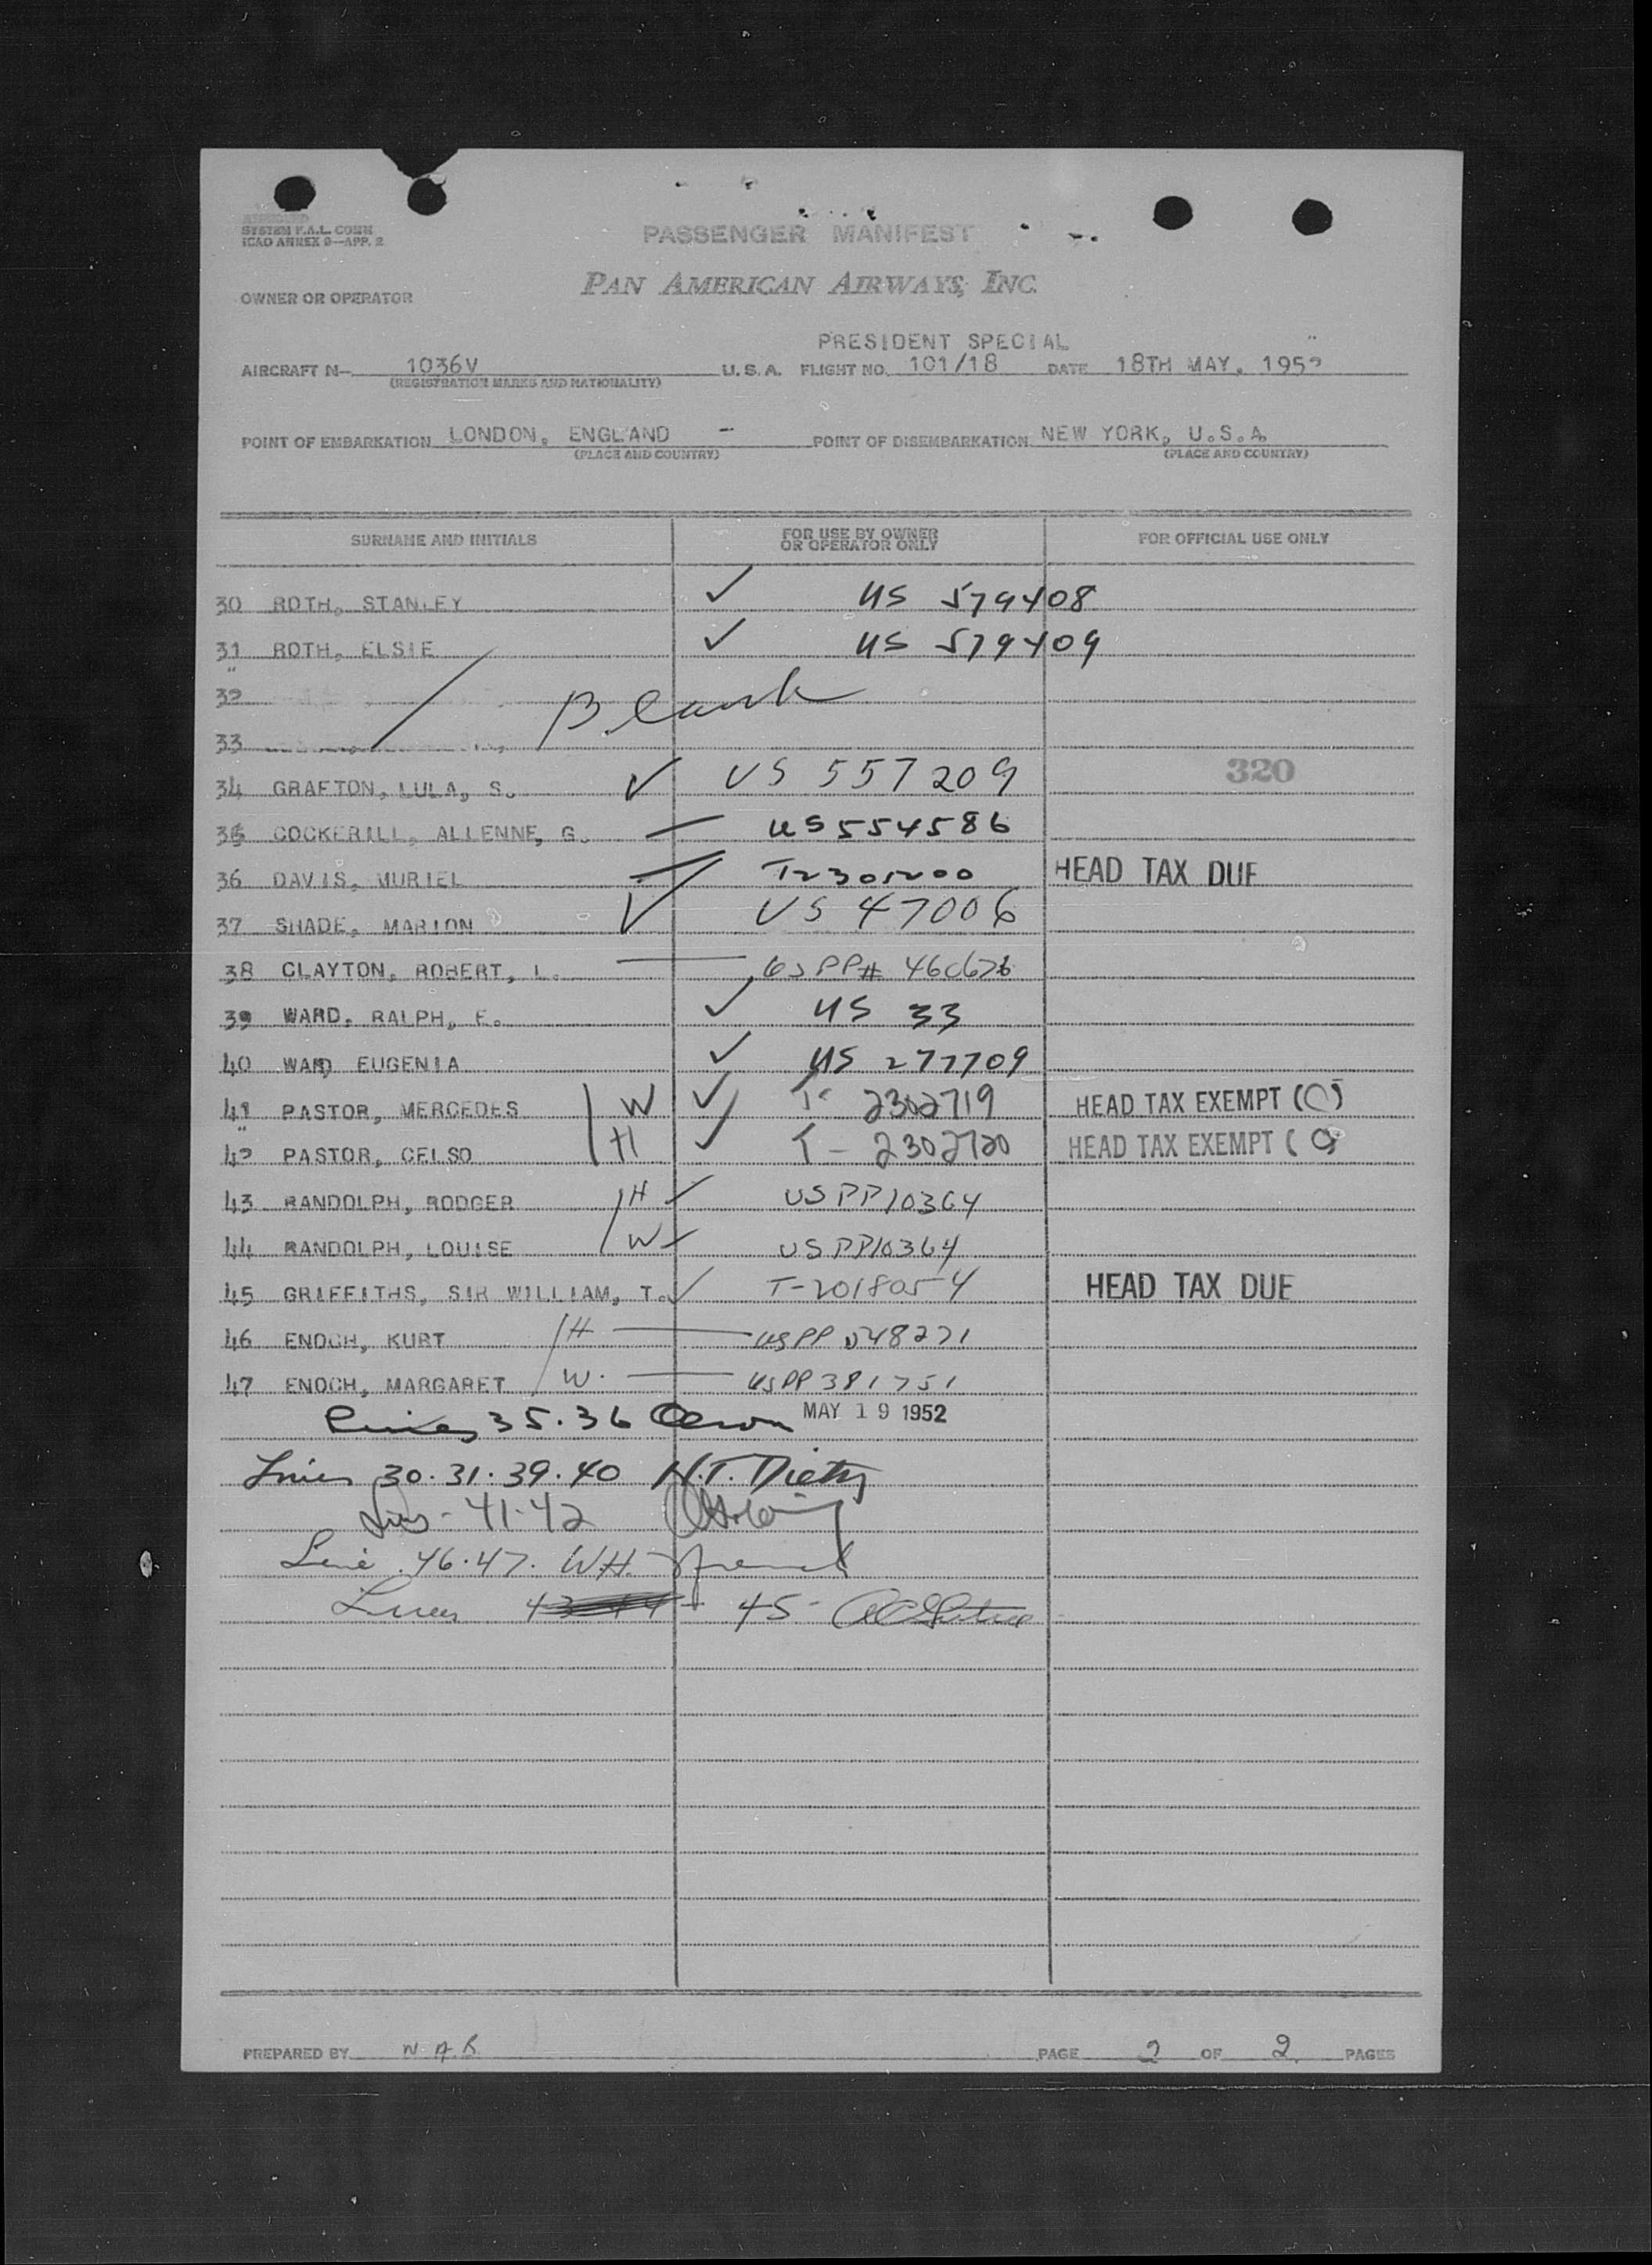 SYSTEM F.A.L. COMM
ICAO ANNEX 9—APP. 2
PASSENGER MANIFEST
PAN AMERICAN AIRWAYS, INC.
OWNER OR OPERATOR
PRESIDENT SPECIAL
AIRCRAFT N— 1036V U.S.A. FLIGHT NO. 101/18 DATE 18TH MAY, 1952
(REGISTRATION MARKS AND NATIONALITY)
POINT OF EMBARKATION LONDON, ENGLAND — POINT OF DISEMBARKATION NEW YORK, U.S.A.
(PLACE AND COUNTRY) (PLACE AND COUNTRY)
SURNAME AND INITIALS FOR USE BY OWNER OR OPERATOR ONLY FOR OFFICIAL USE ONLY
30 ROTH, STANLEY ✓ US 579408
31 ROTH, ELSIE ✓ US 579409
32 Blank
33
320
34 GRAFTON, LULA, S. ✓ US 557209
35 COCKERILL, ALLENNE, G. — US 554586
36 DAVIS, MURIEL T2301200 HEAD TAX DUE
37 SHADE, MARION ✓ US 47006
38 CLAYTON, ROBERT, L. — US PP# 460676
39 WARD, RALPH, E. ✓ US 33
40 WARD EUGENIA ✓ US 277709
41 PASTOR, MERCEDES W ✓ T- 2302719 HEAD TAX EXEMPT (C)
42 PASTOR, CELSO H ✓ T- 2302720 HEAD TAX EXEMPT (
43 RANDOLPH, RODGER H ✓ US PP10364
44 RANDOLPH, LOUISE W ✓ US PP10364
45 GRIFFITHS, SIR WILLIAM, T. ✓ T-2018054 HEAD TAX DUE
46 ENOCH, KURT H — US PP 548271
47 ENOCH, MARGARET W. — US PP 381751
Lines 35.36 MAY 19 1952
Lines 30.31.39.40 N.T. Dietz
Lines - 41-42
Line 46.47. W.H.
Lines 45-
PREPARED BY W.A.B. PAGE 2 OF 2 PAGES